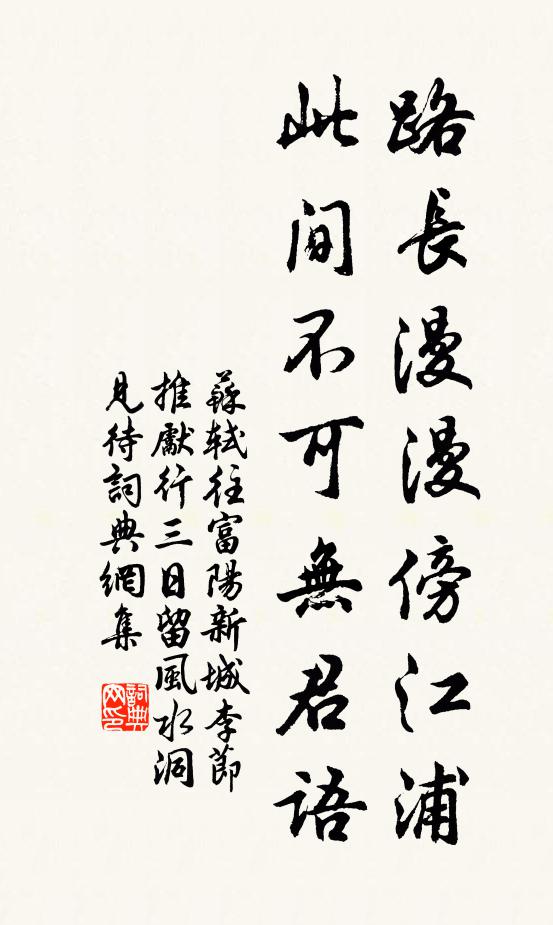 路長漫漫傍江浦
此間不可無君語
蘇軾往富陽新城李節
推獻行三日留風水洞
見待詞典網集
詞典
网印